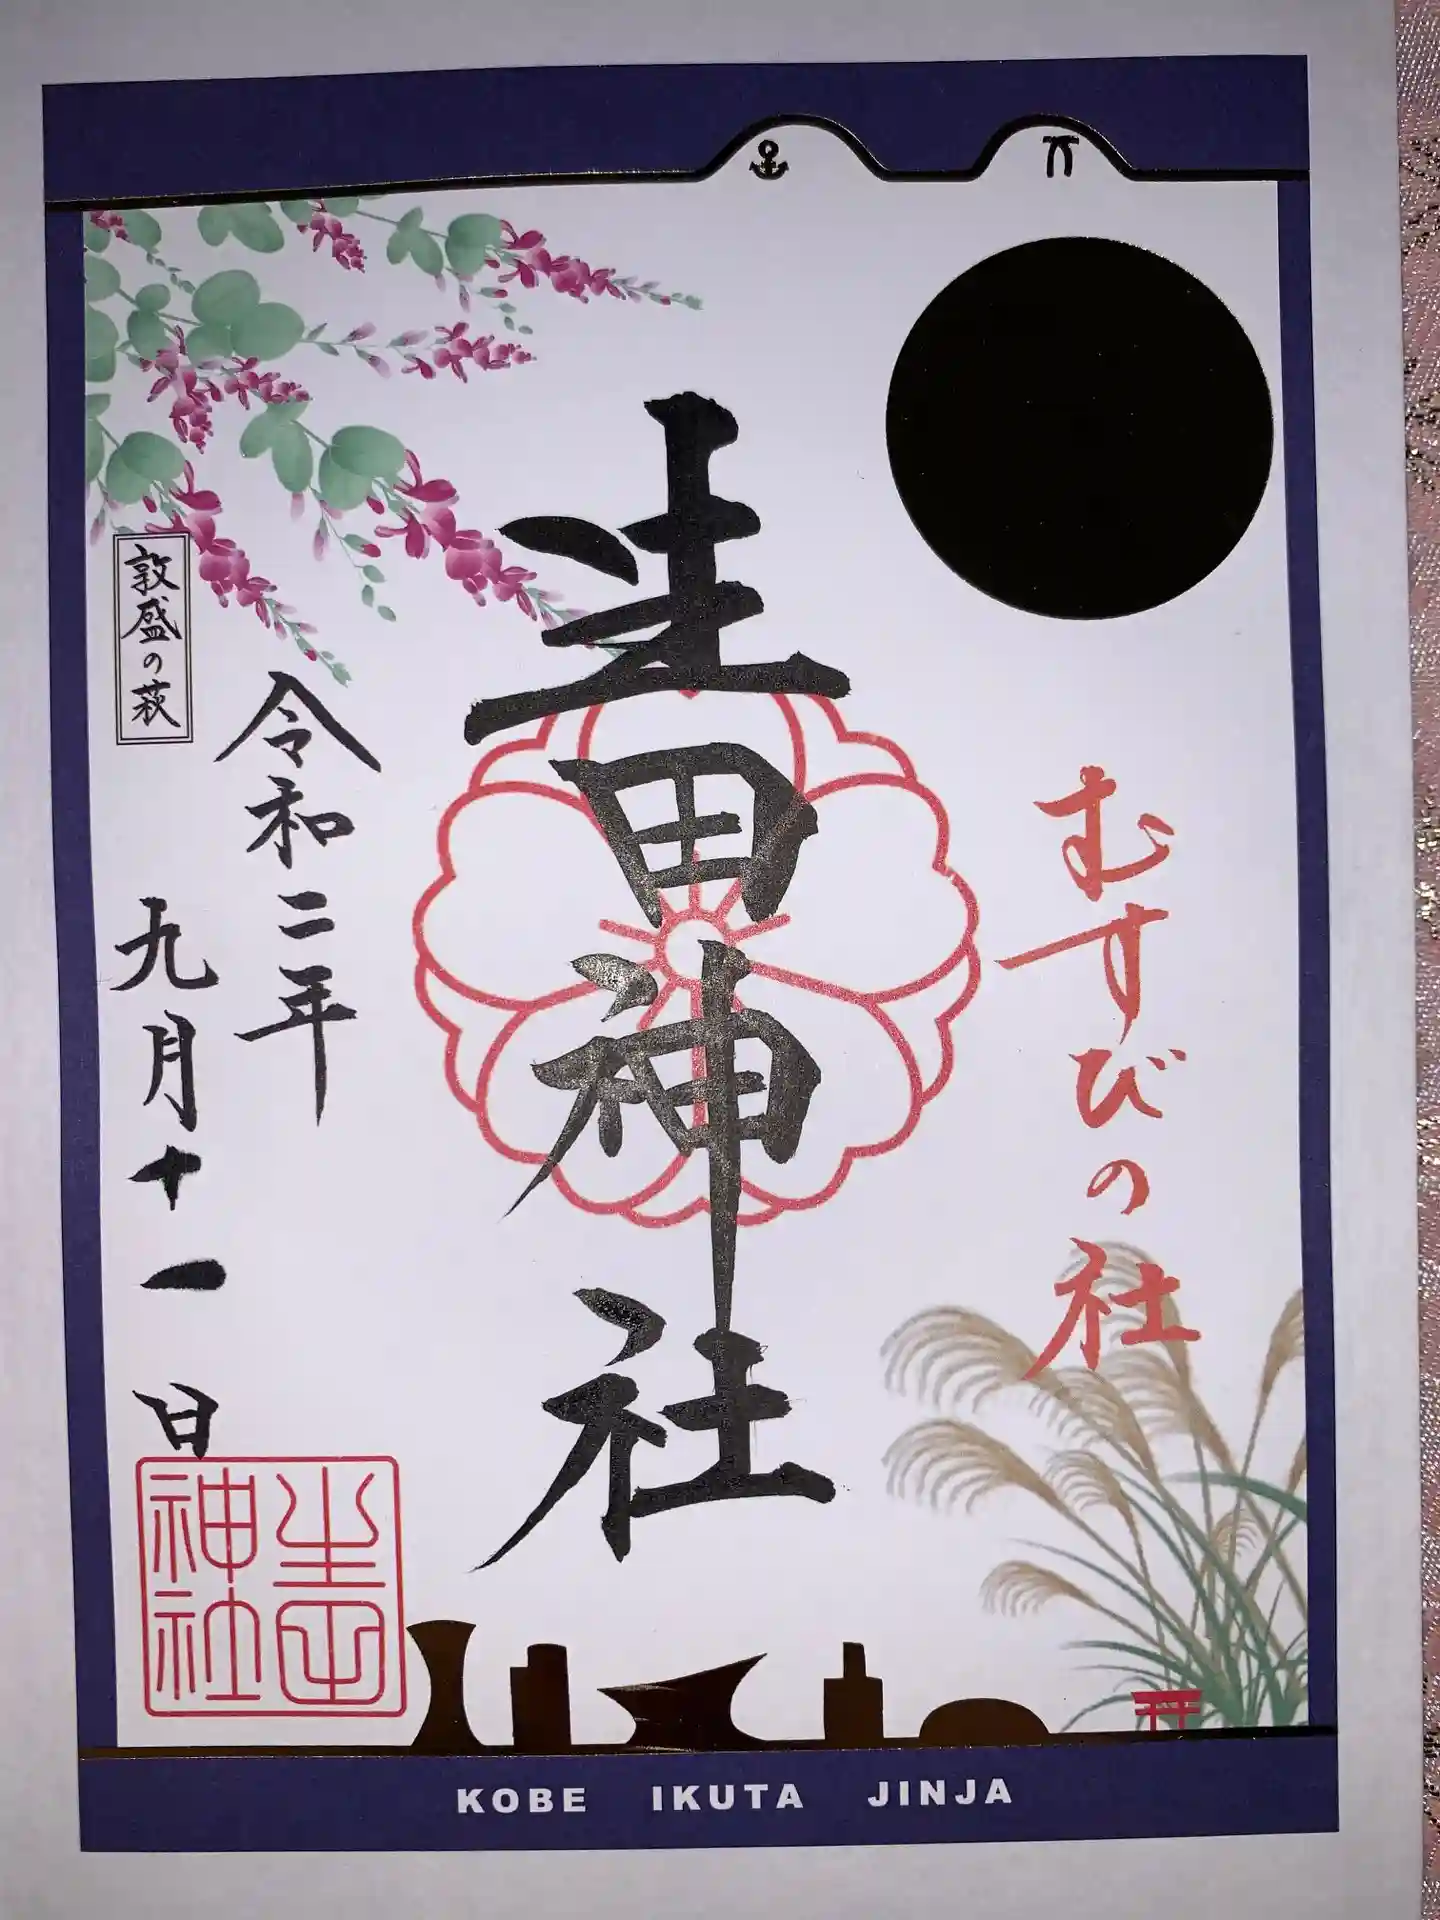 むすびの社
生田神社
令和二年
九月十一日
敦盛の萩
生田
神社
KOBE IKUTA JINJA